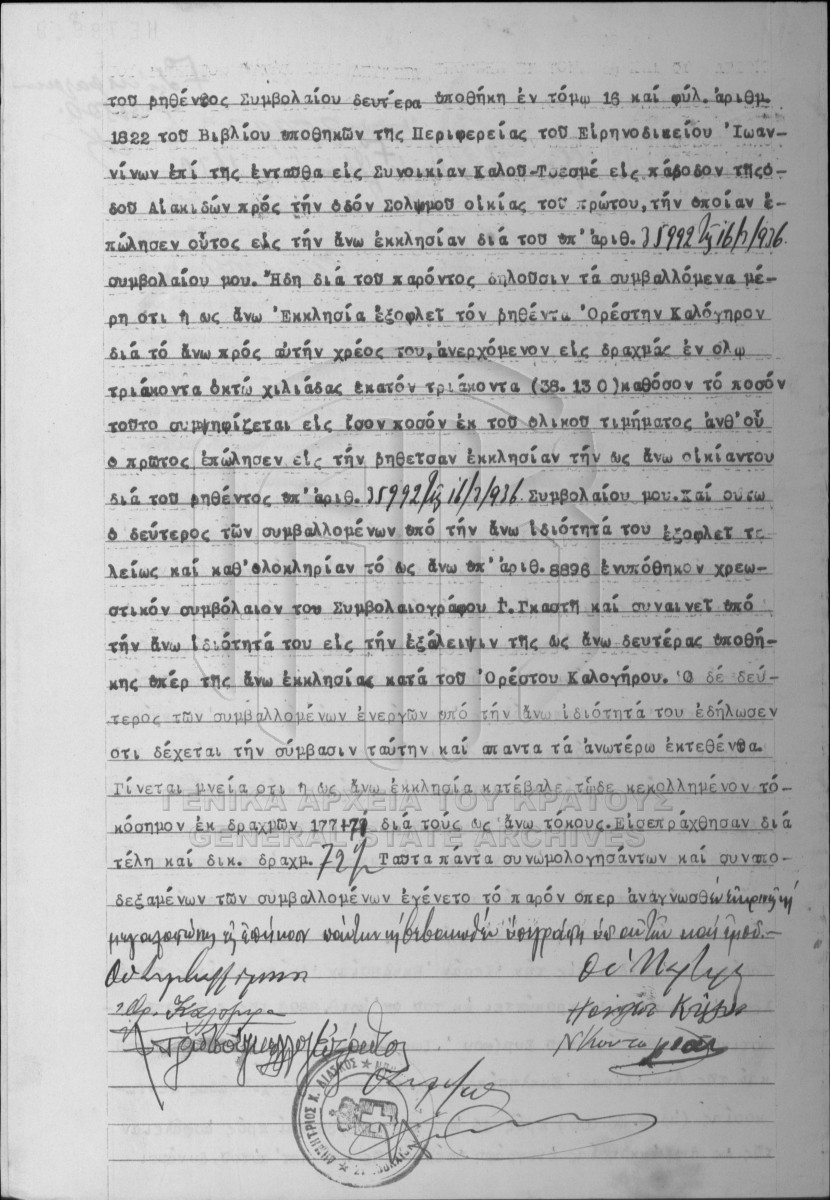 τοῦ ρηθέντος Συμβολαίου δευτέρα ὑποθήκη ἐν τόμῳ 16 καί φύλ. ἀριθμ.
1822 τοῦ Βιβλίου ὑποθηκῶν τῆς Περιφερείας τοῦ Εἰρηνοδικείου Ἰωαν-
νίνων ἐπί τῆς ἐνταῦθα εἰς Συνοικίαν Καλοῦ-Τσεσμέ εἰς πάροδον τῆς ὁ-
δοῦ Αἰακιδῶν πρός τήν ὁδόν Σολωμοῦ οἰκίας τοῦ πρώτου, τήν ὁποίαν ἐ-
πώλησεν οὗτος εἰς τήν ἄνω ἐκκλησίαν διά τοῦ ὑπ' ἀριθ. 35992
συμβολαίου μου. Ἤδη διά τοῦ παρόντος δηλοῦσιν τά συμβαλλόμενα μέ-
ρη ὅτι ἡ ὡς ἄνω Ἐκκλησία ἐξοφλεῖ τόν ρηθέντα Ὀρέστην Καλόγηρον
διά τό ἄνω πρός αὐτήν χρέος του, ἀνερχόμενον εἰς δραχμάς ἐν ὅλῳ
τριάκοντα ὀκτώ χιλιάδας ἑκατόν τριάκοντα (38.130) καθόσον τό ποσόν
τοῦτο συμψηφίζεται εἰς ἴσον ποσόν ἐκ τοῦ ὁλικοῦ τιμήματος ἀνθ' οὗ
ὁ πρῶτος ἐπώλησεν εἰς τήν ρηθεῖσαν ἐκκλησίαν τήν ὡς ἄνω οἰκίαντου
διά τοῦ ρηθέντος ὑπ' ἀριθ. 35992 Συμβολαίου μου. Καί οὕτω
ὁ δεύτερος τῶν συμβαλλομένων ὑπό τήν ἄνω ἰδιότητά του ἐξοφλεῖ τε-
λείως καί καθ' ὁλοκληρίαν τό ὡς ἄνω ὑπ' ἀριθ. 8896 ἐνυπόθηκον χρεω-
στικόν συμβόλαιον τοῦ Συμβολαιογράφου Γ. Γκαστῆ καί συναινεῖ ὑπό
τήν ἄνω ἰδιότητά του εἰς τήν ἐξάλειψιν τῆς ὡς ἄνω δευτέρας ὑποθή-
κης ὑπέρ τῆς ἄνω ἐκκλησίας κατά τοῦ Ὀρέστου Καλογήρου. Ὁ δέ δεύ-
τερος τῶν συμβαλλομένων ἐνεργῶν ὑπό τήν ἄνω ἰδιότητά του ἐδήλωσεν
ὅτι δέχεται τήν σύμβασιν ταύτην καί ἅπαντα τά ἀνωτέρω ἐκτεθέντα.
Γίνεται μνεία ὅτι ἡ ὡς ἄνω ἐκκλησία κατέβαλε τῷδε κεκολλημένον τό-
ΓΕΝΙΚΑ ΑΡΧΕΙΑ ΤΟΥ ΚΡΑΤΟΥΣ
κόσημον ἐκ δραχμῶν διά τούς ὡς ἄνω τόκους. Εἰσεπράχθησαν διά
GENERAL STATE ARCHIVES
τέλη καί δικ. δραχμ. Ταῦτα πάντα συνωμολογησάντων καί συναπο-
δεξαμένων τῶν συμβαλλομένων ἐγένετο τό παρόν ὅπερ ἀναγνωσθέν
Οἱ Συμβαλλόμενοι
Οἱ Μάρτυρες